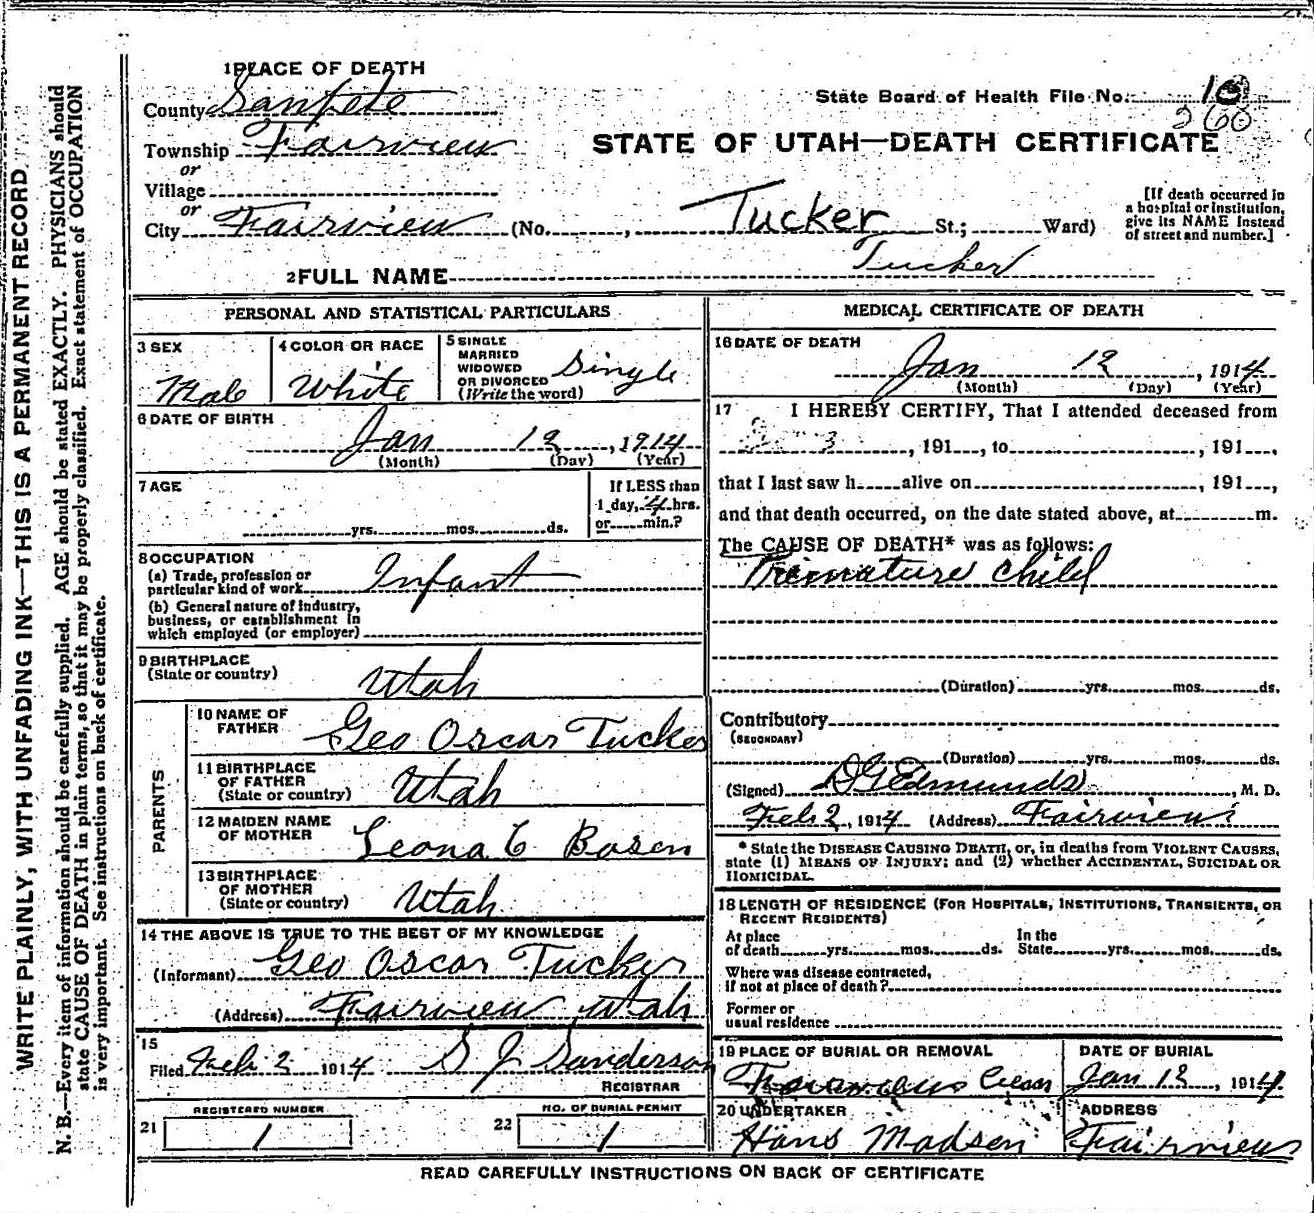 WRITE PLAINLY, WITH UNFADING INK—THIS IS A PERMANENT RECORD
N. B.—Every item of information should be carefully supplied. AGE should be stated EXACTLY. PHYSICIANS should
state CAUSE OF DEATH in plain terms, so that it may be properly classified. Exact statement of OCCUPATION
is very important. See instructions on back of certificate.
1 PLACE OF DEATH
County Sanpete
Township Fairview
or
Village
or
City Fairview (No. , Tucker St.; Ward)
State Board of Health File No. 10
260
STATE OF UTAH—DEATH CERTIFICATE
[If death occurred in
a hospital or institution,
give its NAME instead
of street and number.]
2 FULL NAME Tucker
PERSONAL AND STATISTICAL PARTICULARS
3 SEX
Male
4 COLOR OR RACE
White
5 SINGLE
MARRIED
WIDOWED
OR DIVORCED
(Write the word)
Single
6 DATE OF BIRTH
Jan 12, 1914
(Month) (Day) (Year)
7 AGE
yrs. mos. ds.
If LESS than
1 day, 4 hrs.
or min.?
8 OCCUPATION
(a) Trade, profession or
particular kind of work Infant
(b) General nature of industry,
business, or establishment in
which employed (or employer)
9 BIRTHPLACE
(State or country)
Utah
PARENTS
10 NAME OF
FATHER
Geo Oscar Tucker
11 BIRTHPLACE
OF FATHER
(State or country)
Utah
12 MAIDEN NAME
OF MOTHER
Leona C Bosen
13 BIRTHPLACE
OF MOTHER
(State or country)
Utah
14 THE ABOVE IS TRUE TO THE BEST OF MY KNOWLEDGE
(Informant) Geo Oscar Tucker
(Address) Fairview Utah
15
Filed Feb 2 1914 S J Sanderson
REGISTRAR
REGISTERED NUMBER
21 1
NO. OF BURIAL PERMIT
22 1
MEDICAL CERTIFICATE OF DEATH
16 DATE OF DEATH
Jan 12, 1914
(Month) (Day) (Year)
17 I HEREBY CERTIFY, That I attended deceased from
, 191 , to , 191 ,
that I last saw h alive on , 191 ,
and that death occurred, on the date stated above, at m.
The CAUSE OF DEATH* was as follows:
Premature child
(Duration) yrs. mos. ds.
Contributory
(SECONDARY)
(Duration) yrs. mos. ds.
(Signed) D G Edmunds, M. D.
Feb 2, 1914 (Address) Fairview
* State the DISEASE CAUSING DEATH, or, in deaths from VIOLENT CAUSES,
state (1) MEANS OF INJURY; and (2) whether ACCIDENTAL, SUICIDAL OR
HOMICIDAL.
18 LENGTH OF RESIDENCE (FOR HOSPITALS, INSTITUTIONS, TRANSIENTS, OR
RECENT RESIDENTS)
At place
of death yrs. mos. ds.
In the
State yrs. mos. ds.
Where was disease contracted,
if not at place of death?
Former or
usual residence
19 PLACE OF BURIAL OR REMOVAL
Fairview Cem
DATE OF BURIAL
Jan 12, 1914
20 UNDERTAKER
Hans Madsen
ADDRESS
Fairview
READ CAREFULLY INSTRUCTIONS ON BACK OF CERTIFICATE